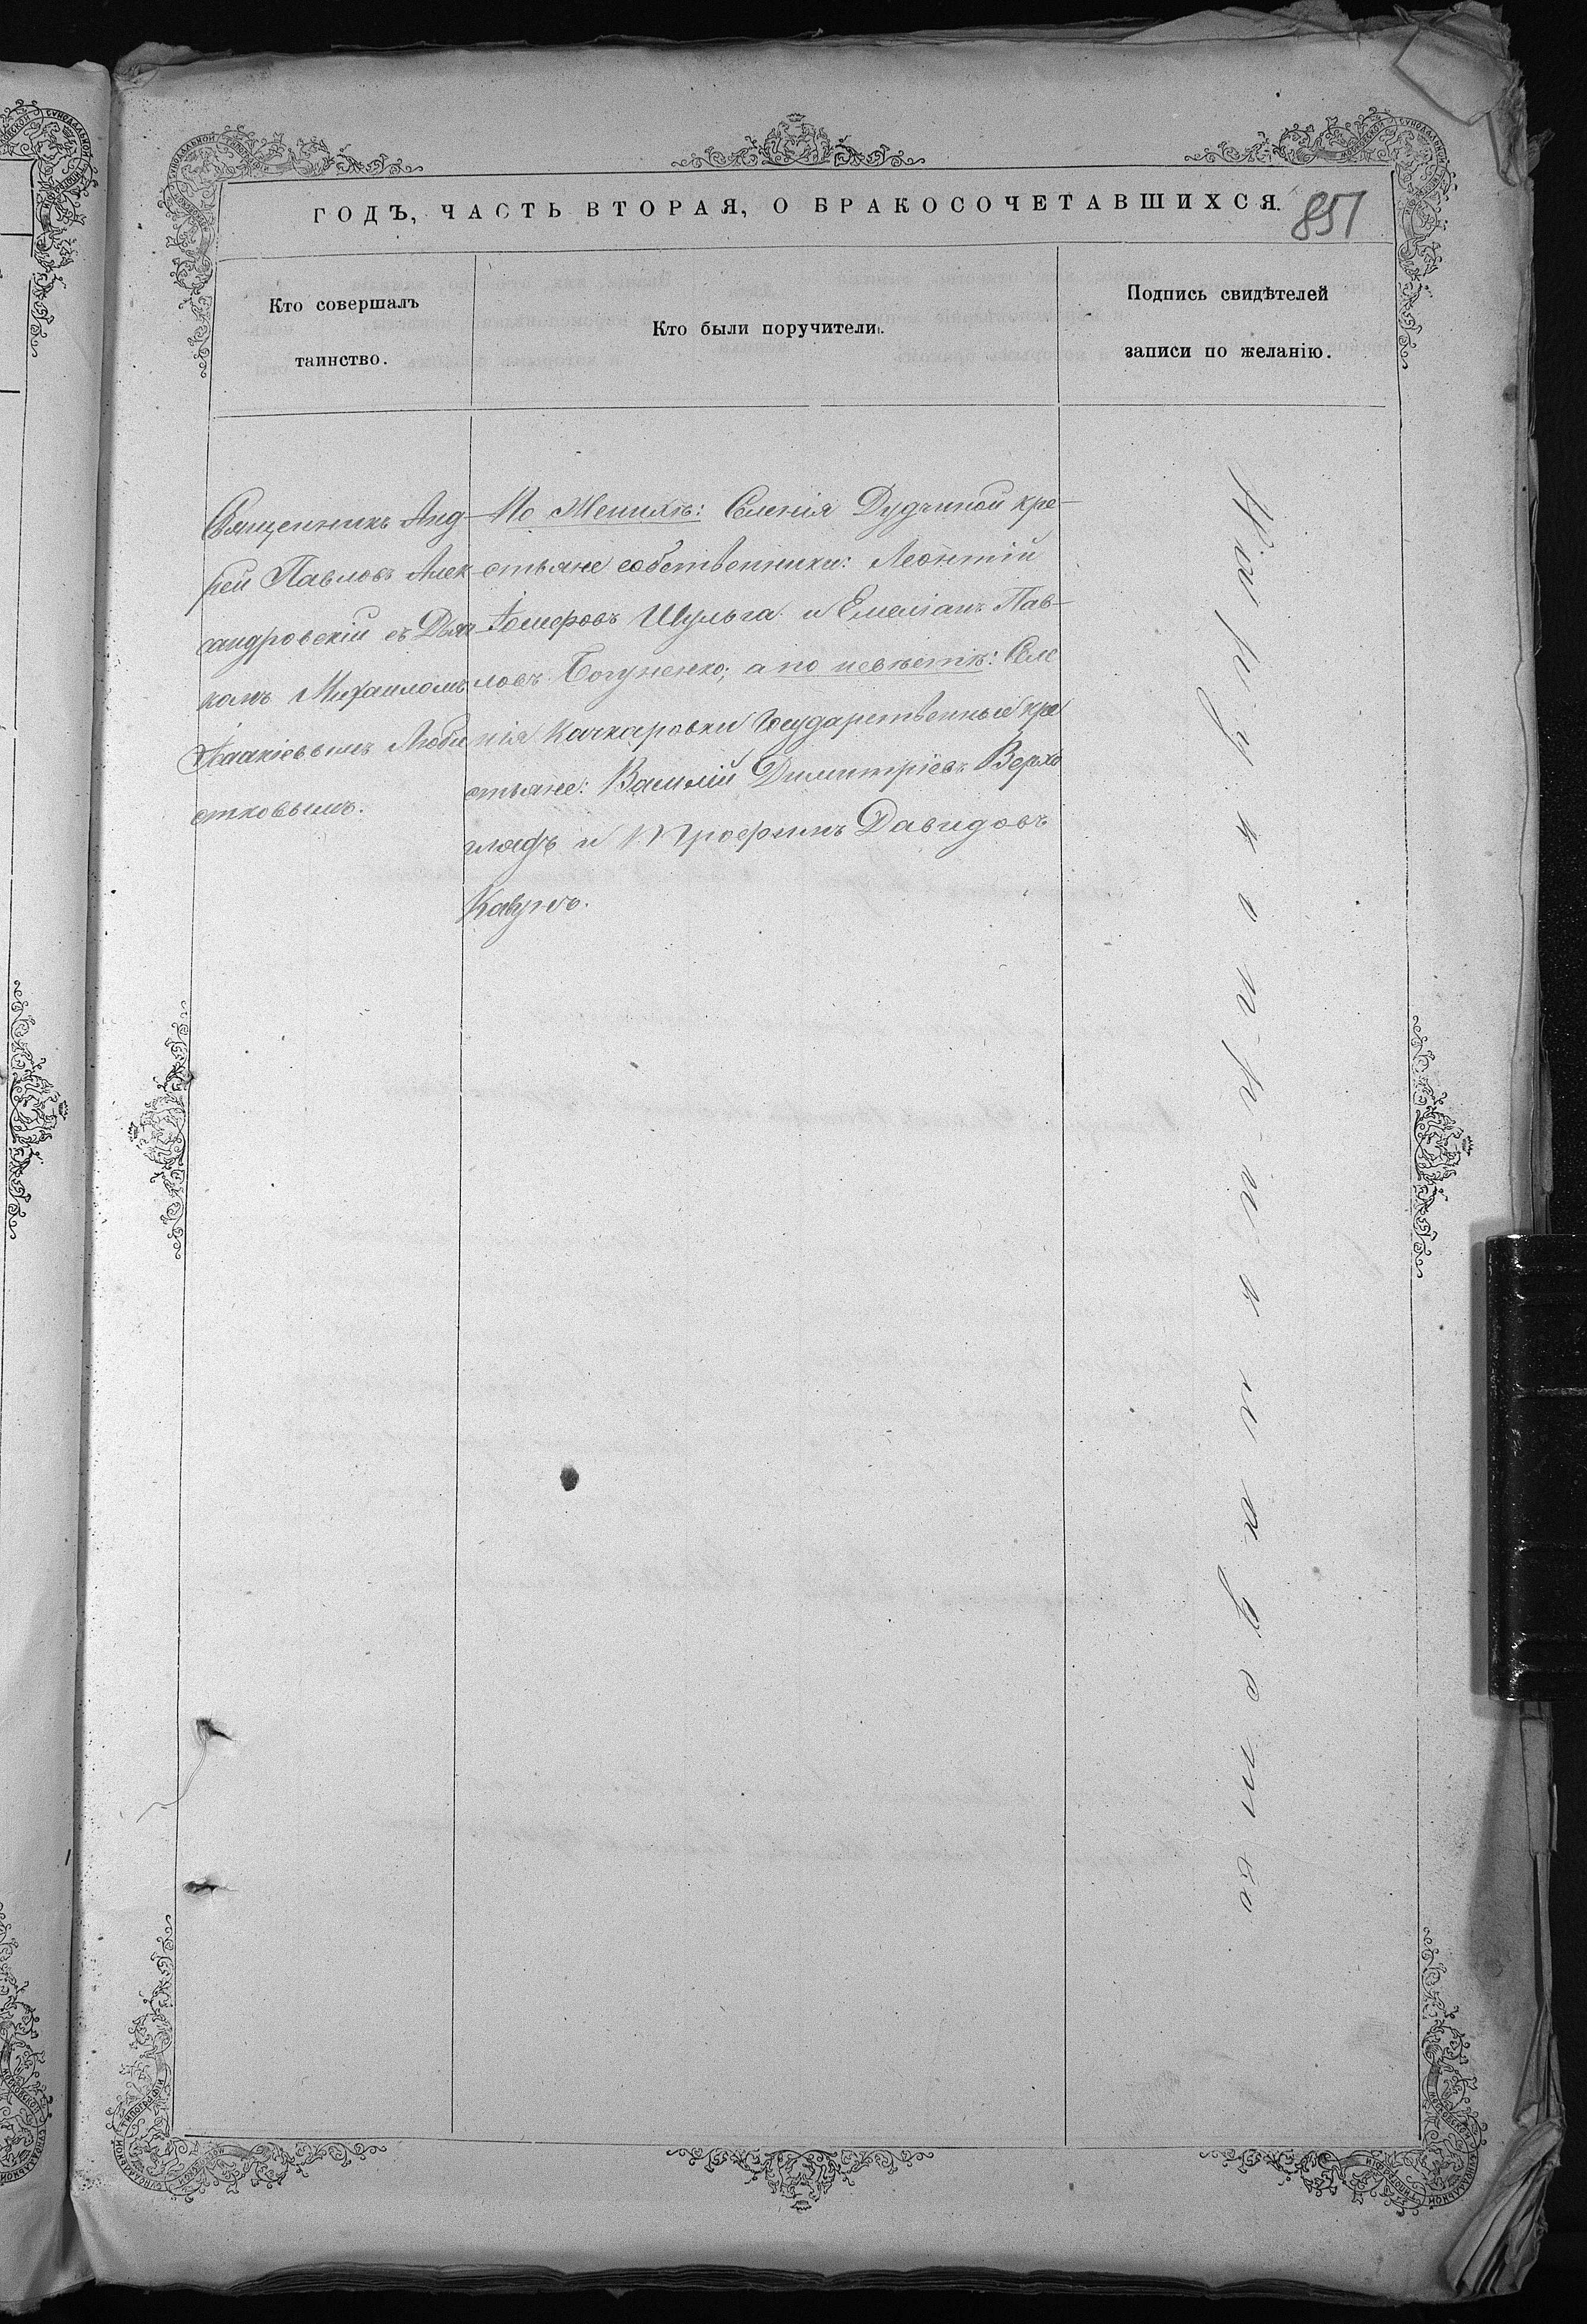 ГОДЪ, ЧАСТЬ ВТОРАЯ, О БРАКОСОЧЕТАВШИХСЯ. 851
Кто совершалъ
таинство.
Кто были поручители.
Подпись свидѣтелей
записи по желанію.
Священникъ Анд-
рей Павловъ Алек-
сандровскій съ Дьяч-
комъ Михаиломъ
Исаакіевымъ Люби
стковымъ.
По Женихѣ: Селенія Дудчиной кре-
стьяне собственники: Леонтій
Іосифовъ Шульга и Емеліанъ Пав-
ловъ Богуненко; а по невѣстѣ: Селе
нія Качкаровки Государственные кре
стьяне: Василій Димитріевъ Верхо
глядъ и Трофимъ Давидовъ
Кавунъ.